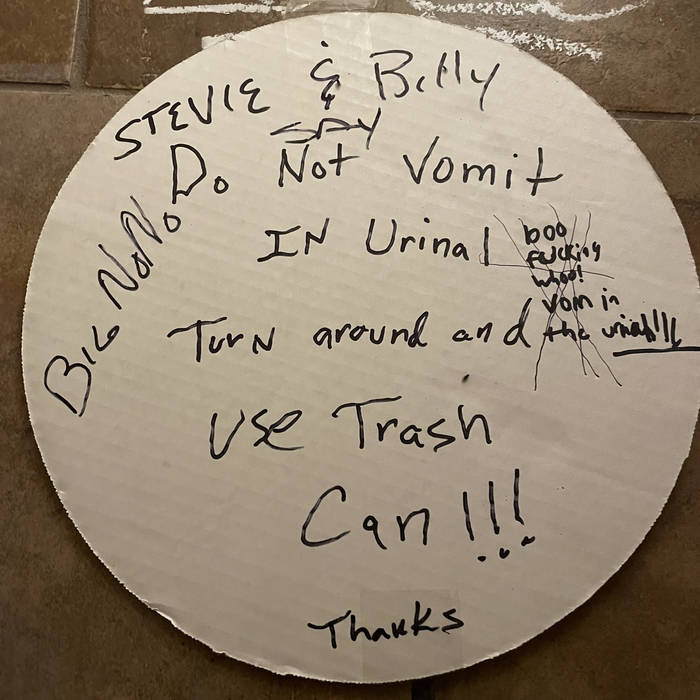 STEVIE & Billy
SAY
Do Not Vomit
BIG NoNo
IN Urinal
boo
fucking
whoo!
vom in
the urinal!!!
Turn around and
use Trash
Can!!!
Thanks